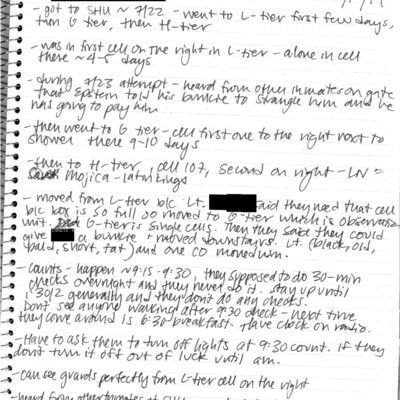 - got to SHU ~ 7/22 - went to L-tier first few days,
then G tier, then H-tier
- was in first cell on the right in L-tier - alone in cell
there ~4-5 days
- during 7/23 attempt - heard from other inmates on gate
that Epstein told his bunkie to strangle him and he
was going to pay him
- then went to G tier - cell first one to the right next to
shower there 9-10 days
- then to H-tier, cell 107, second on right - LN =
Mojica - Latin Kings
- moved from L-tier b/c Lt. said they need that cell
b/c box is so full so moved to G-tier which is observation
unit, G-tier is single cells. Then they said they could
give a bunkie + moved downstairs. Lt. (black, old,
bald, short, fat) and one CO moved him.
- counts - happen ~9:15-9:30, they supposed to do 30-min
checks overnight and they never do it. stay up until
1:30/2 generally and they don't do any checks.
Don't see anyone walking after 9:30 check - next time
they come around is 6:30 breakfast. Have clock on radio.
- Have to ask them to turn off lights at 9:30 count. if they
don't turn it off out of luck until am.
- can see guards perfectly from L-tier cell on the right
- heard from other inmates at SHU